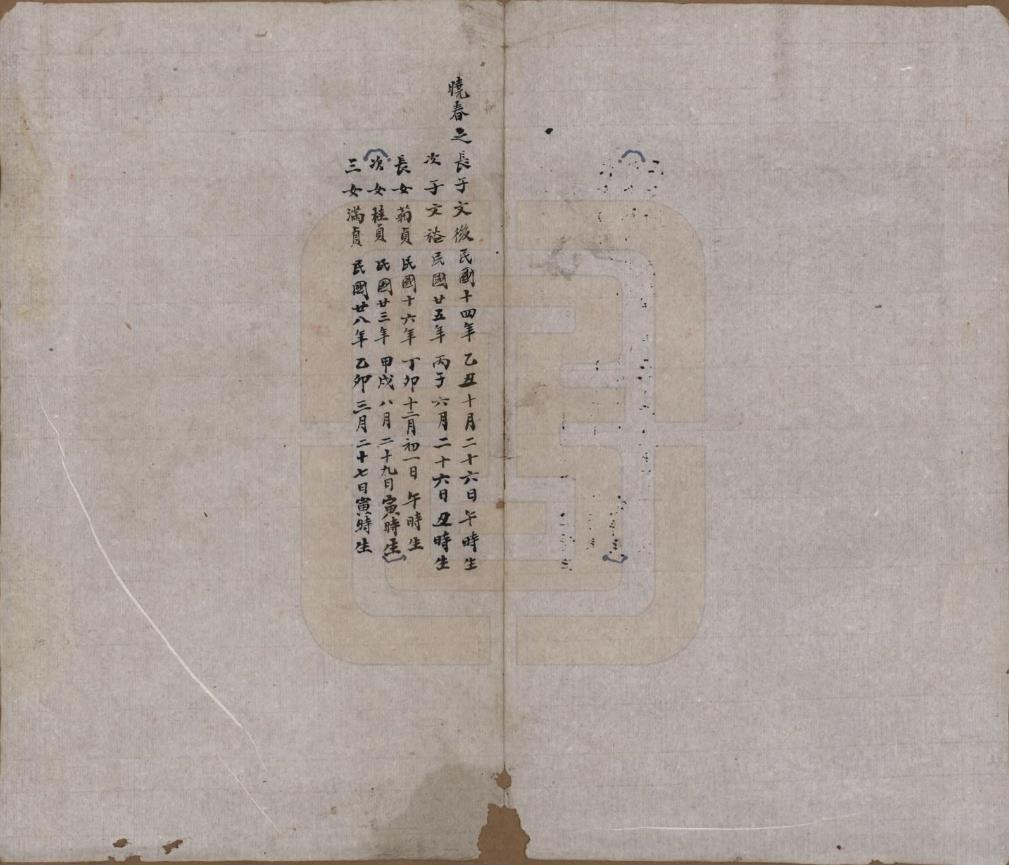 曉春之長子文後民國十四年乙丑十月二十六日午時生
次子文裕民國廿五年丙子六月二十六日丑時生
長女菊貞民國十六年丁卯十二月初一日午時生
次女桂貞民國廿三年甲戌八月二十九日寅時生
三女滿貞民國廿八年乙卯三月二十七日寅時生